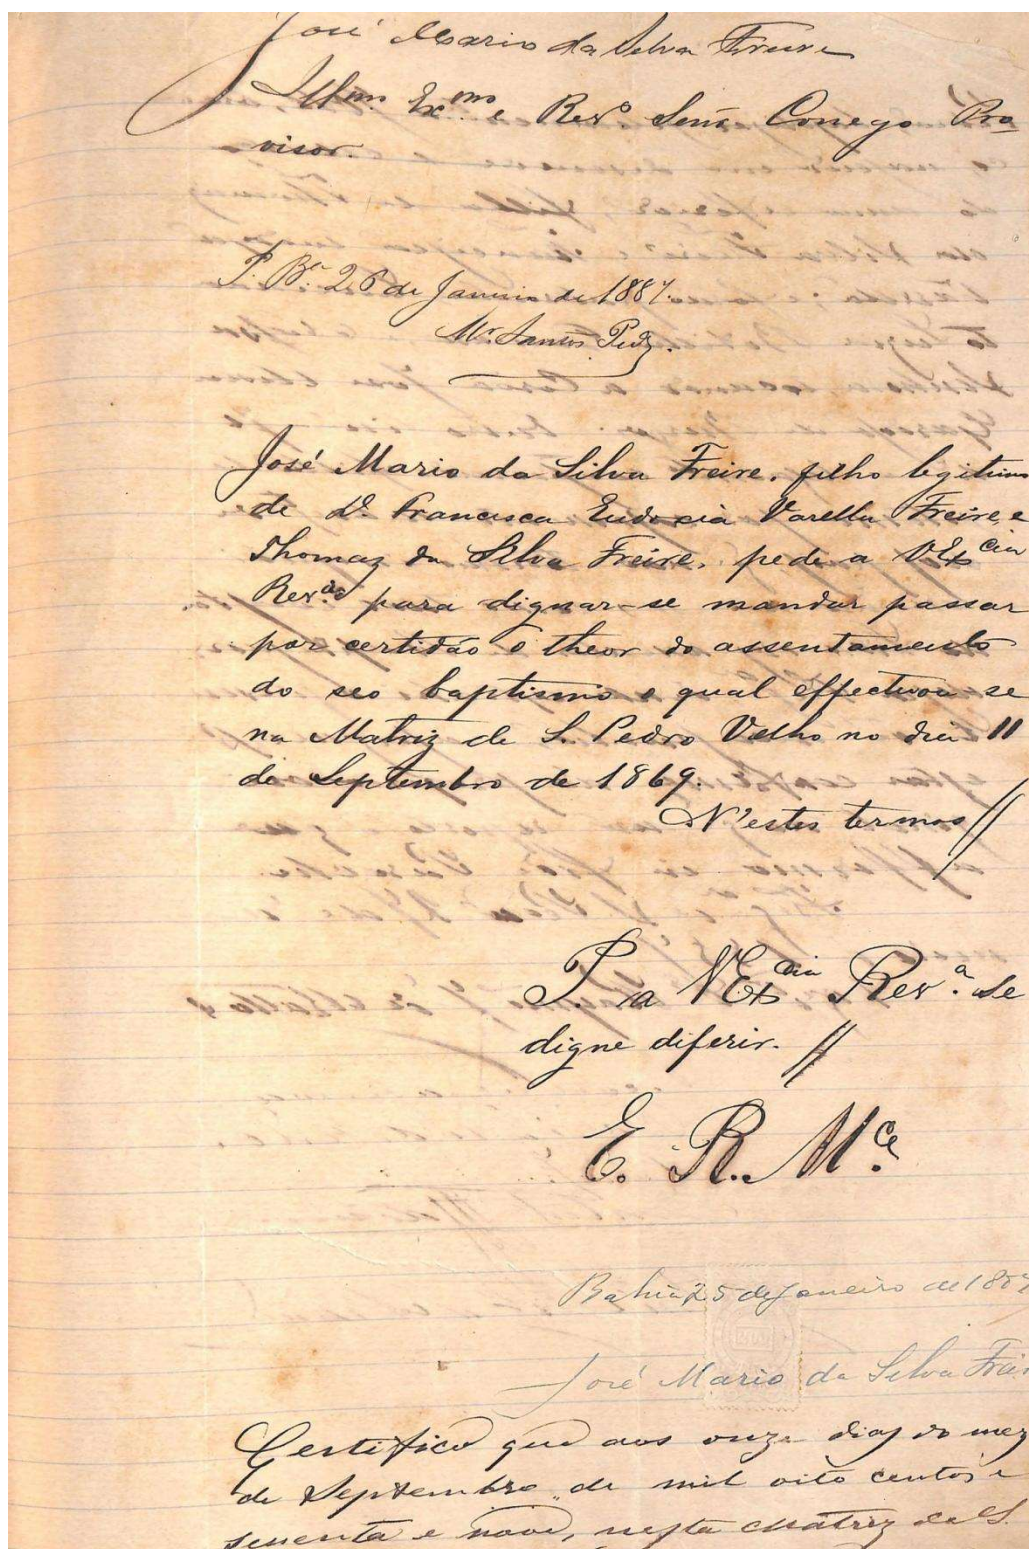 José Mario da Silva Freire
Illmo. Exmo. e Revo. Senr. Conego Pro
visor.
P. Ba. 26 de Janeiro de 1887.
Mr. Santos
José Mario da Silva Freire, filho legitimo
de D. Francisca Eudoxia Varella Freire, e
Thomaz da Silva Freire, pede a V Excia
Revma para dignar-se mandar passar
por certidão o theor do assentamento
do seo baptismo o qual effectuou-se
na Matriz de S. Pedro Velho no dia 11
de Septembro de 1869.
N'estes termos //
P. a V Excia Reva. se
digne diferir. //
E. R. Mce.
Bahia 25 de Janeiro de 1887
José Mario da Silva Frei
Certifico que aos onze dias do mez
de Septembro de mil oito centos e
sessenta e nove, nesta Matriz de S.